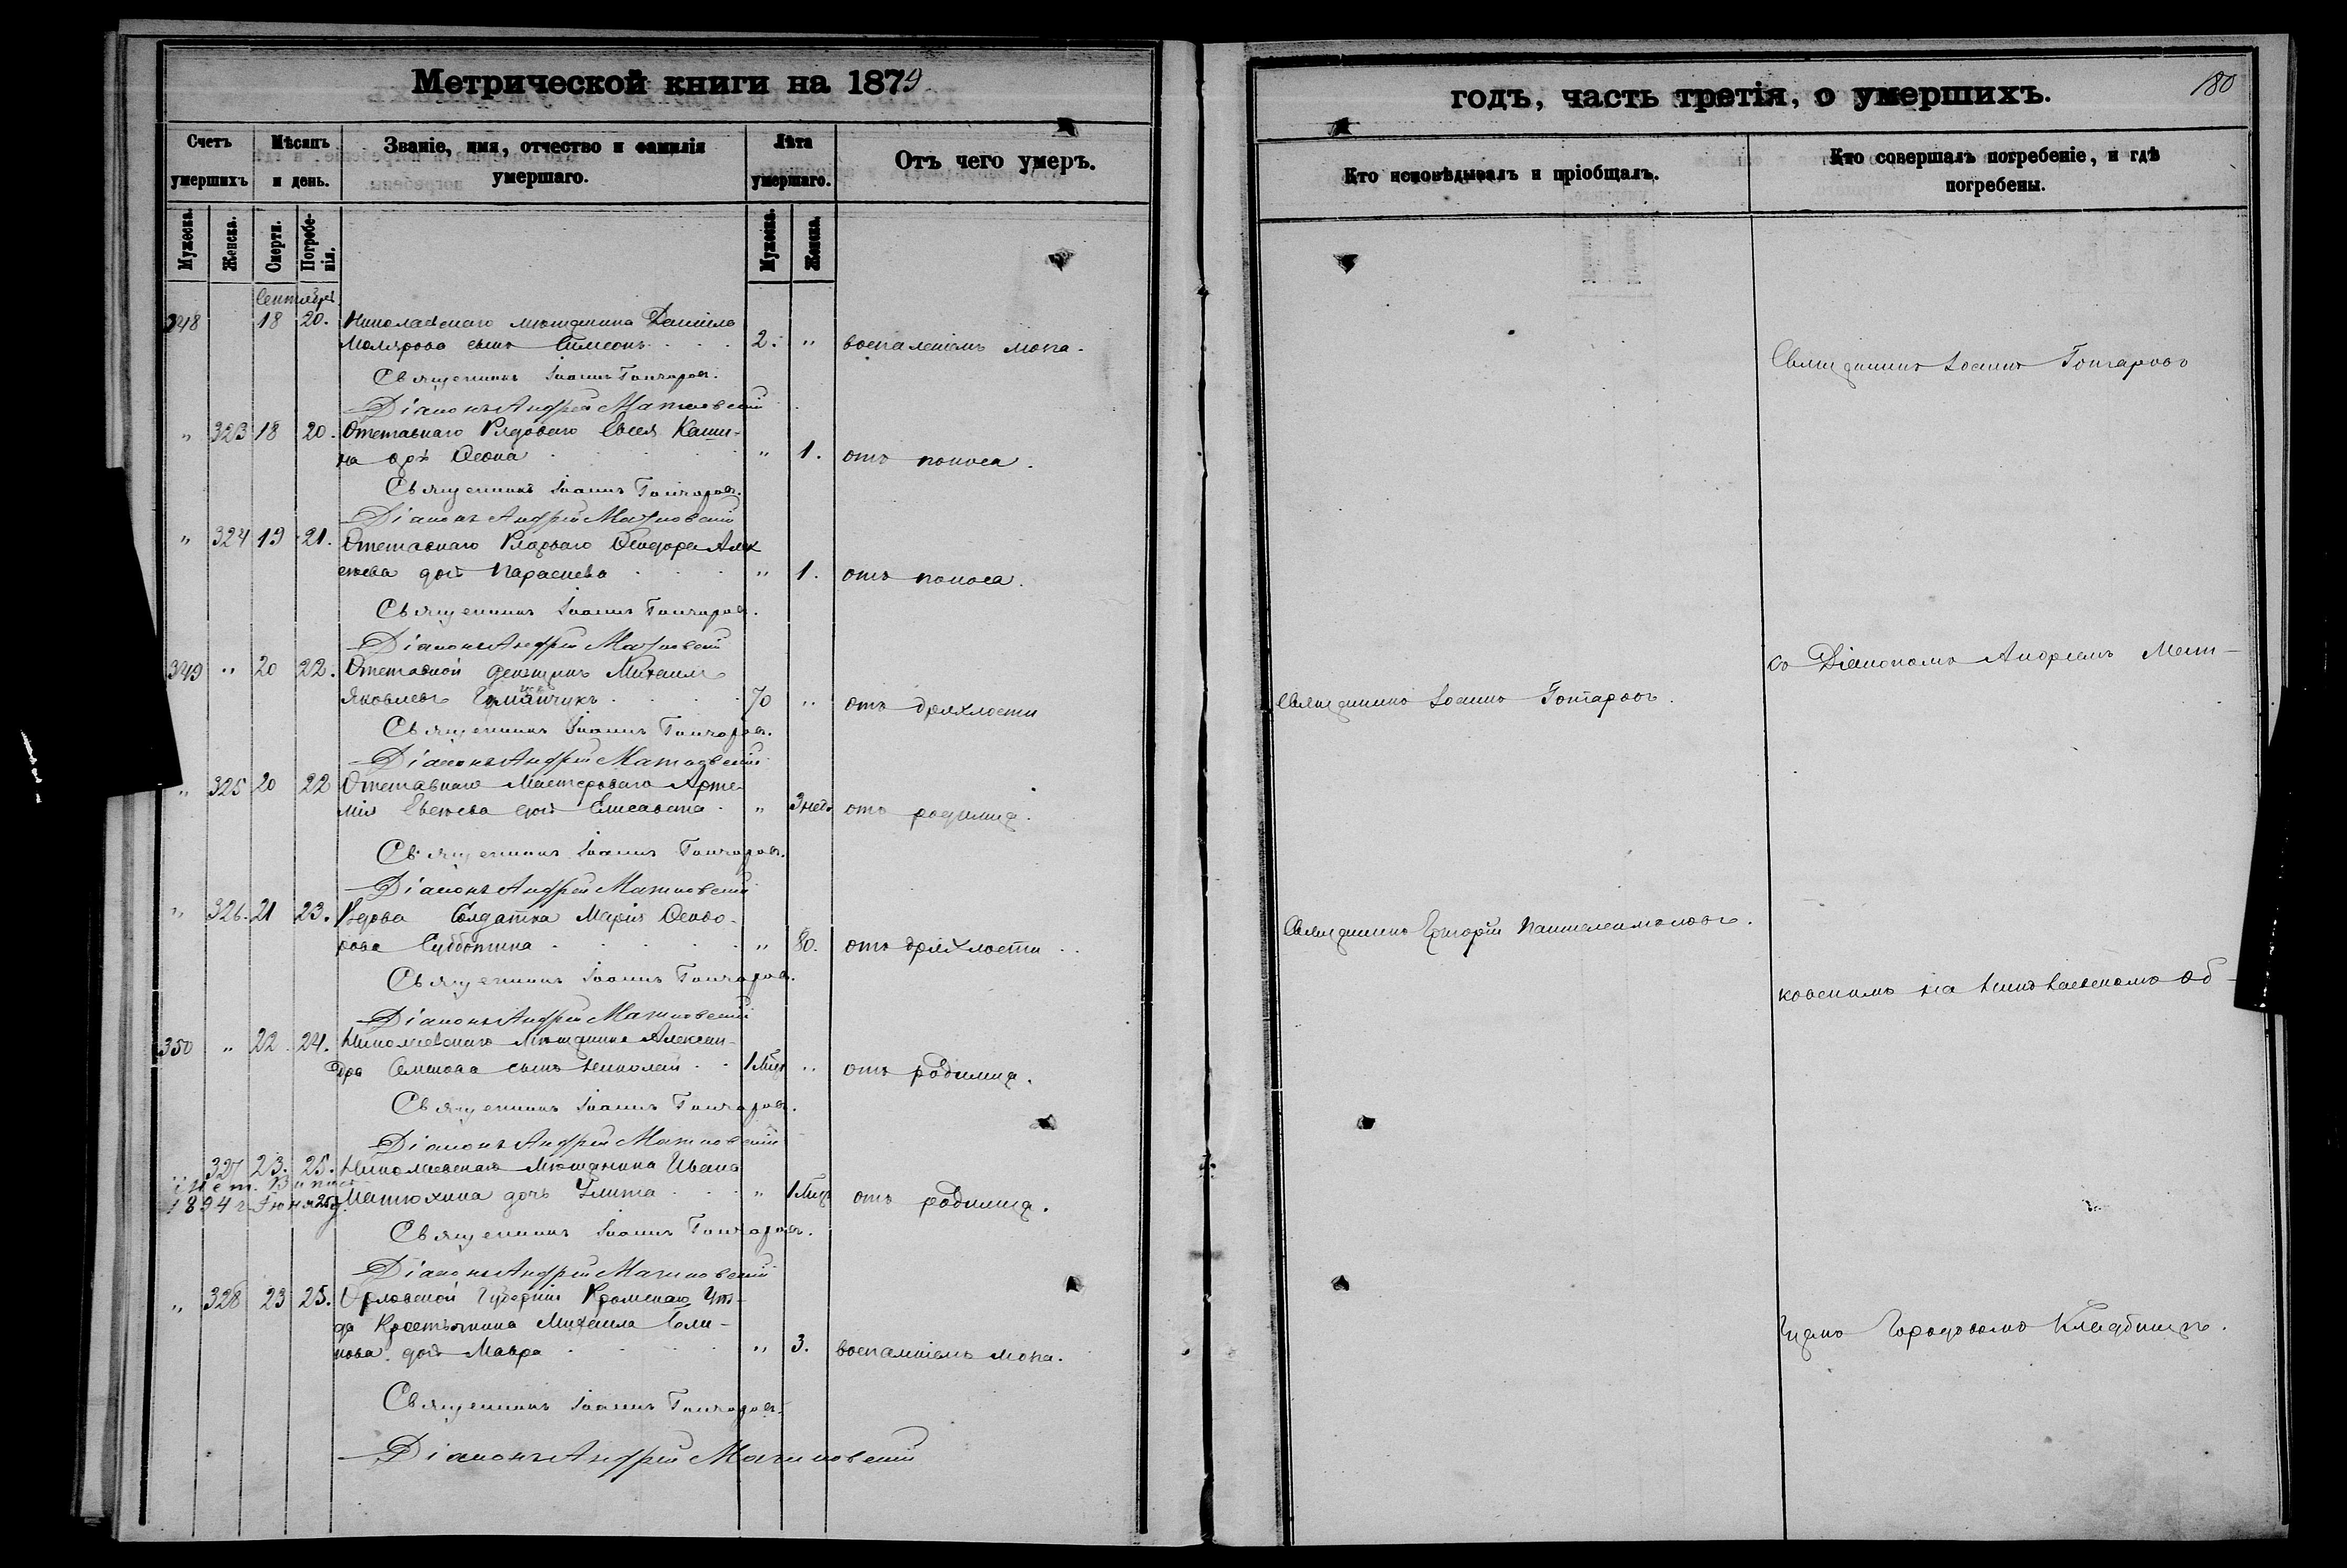 Метрической книги на 1879
Счетъ умершихъ
Мѣсяцъ и день.
Званіе, имя, отчество и фамилія умершаго.
Лѣта умершаго.
Отъ чего умеръ.
Мужеска. Женска. Смерти. Погребенія. Мужеска. Женска.
Сентябрь
348 18 20. Николаевскаго мѣщанина Даніила
Молярова сынъ Симеонъ 2. " воспаленіемъ мозга.
Священникъ Іоаннъ Гончаровъ.
Діаконъ Андрей
" 323 18 20. Отставнаго Рядоваго Евсея Каши-
на дочь " 1. отъ поноса.
Священникъ Іоаннъ Гончаровъ.
Діаконъ Андрей
" 324 19 21. Отставнаго Рядоваго Ѳеодора Алек
сѣева дочь Параскева " 1. отъ поноса.
Священникъ Іоаннъ Гончаровъ.
Діаконъ Андрей
349 " 20 22. Отставной денщикъ Михаилъ
Яковлевъ 70 " отъ дряхлости
Священникъ Іоаннъ Гончаровъ.
Діаконъ Андрей
" 325 20 22 Отставнаго Мастероваго Арте-
мія дочь Елисавета " 3 нед. отъ родимца.
Священникъ Іоаннъ Гончаровъ.
Діаконъ Андрей
" 326. 21 23. Вдова Солдатка Марія Ѳеодо-
рова Субботина " 80. отъ дряхлости
Священникъ Іоаннъ Гончаровъ.
Діаконъ Андрей
350 " 22. 24. Николаевскаго Мѣщанина Алексан-
дра Семенова сынъ Николай 1 Мѣц " отъ родимца.
Священникъ Іоаннъ Гончаровъ.
Діаконъ Андрей
" 327 23. 25. Николаевскаго Мѣщанина Ивана
1894 г. Іюня 25 д. Матюхина дочь Улита " 1 Мѣц отъ родимца.
Священникъ Іоаннъ Гончаровъ.
Діаконъ Андрей
" 328 23 25. Орловской Губерніи Кромскаго Уѣз-
да Крестьянина Михаила
дочь Мавра " 3. воспаленіемъ мозга.
Священникъ Іоаннъ Гончаровъ.
Діаконъ Андрей
годъ, часть третія, о умершихъ.
180
Кто исповѣдывалъ и пріобщалъ.
Кто совершалъ погребеніе, и гдѣ погребены.
Священникъ Іоаннъ Гончаровъ
съ Діакономъ Андреемъ
Священникъ Іоаннъ Гончаровъ.
Священникъ Григорій Пантелеимоновъ.
ковскимъ на Николаевскомъ об-
щемъ Городовомъ Кладбищѣ.